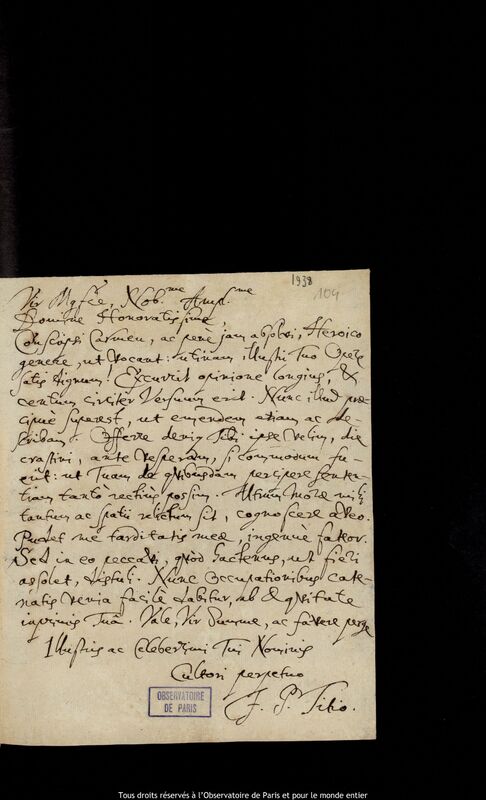 1938
104
Vir Mgfce, Nob.me Ampl.me
Domine Honoratissime,
Conscripsi Carmen, ac pene jam absolvi, Heroico
genere, ut vocant: utinam illustri Tuo Opere
satis dignum! Excurrit opinione longius, &
centum circiter Versuum erit. Nunc illud prae
cipuè superest, ut emendem etiam ac de
scribam. Offerre deniq Tibi ipse velim, die
crastini, ante vesperam, si commodum fu-
erit: ut Tuam de quibusdam percipere senten-
tiam tantò rectius possim. Utrum morae mihi
tantum ac spatii relictum sit, cognoscere aveo.
Pudet me tarditatis meae, ingenuè fateor.
Sed in eo peccavi, quod hactenus, ut fieri
assolet, distuli. Nunc occupationibus cate-
natis venia facilè dabitur, ab aequitate
inprimis Tuâ. Vale, Vir Summe, ac favere perge
Illustris ac Celeberrimi Tui Nominis
Cultori perpetuo
J. P. Titio.
OBSERVATOIRE
DE PARIS
Tous droits réservés à l'Observatoire de Paris et pour le monde entier